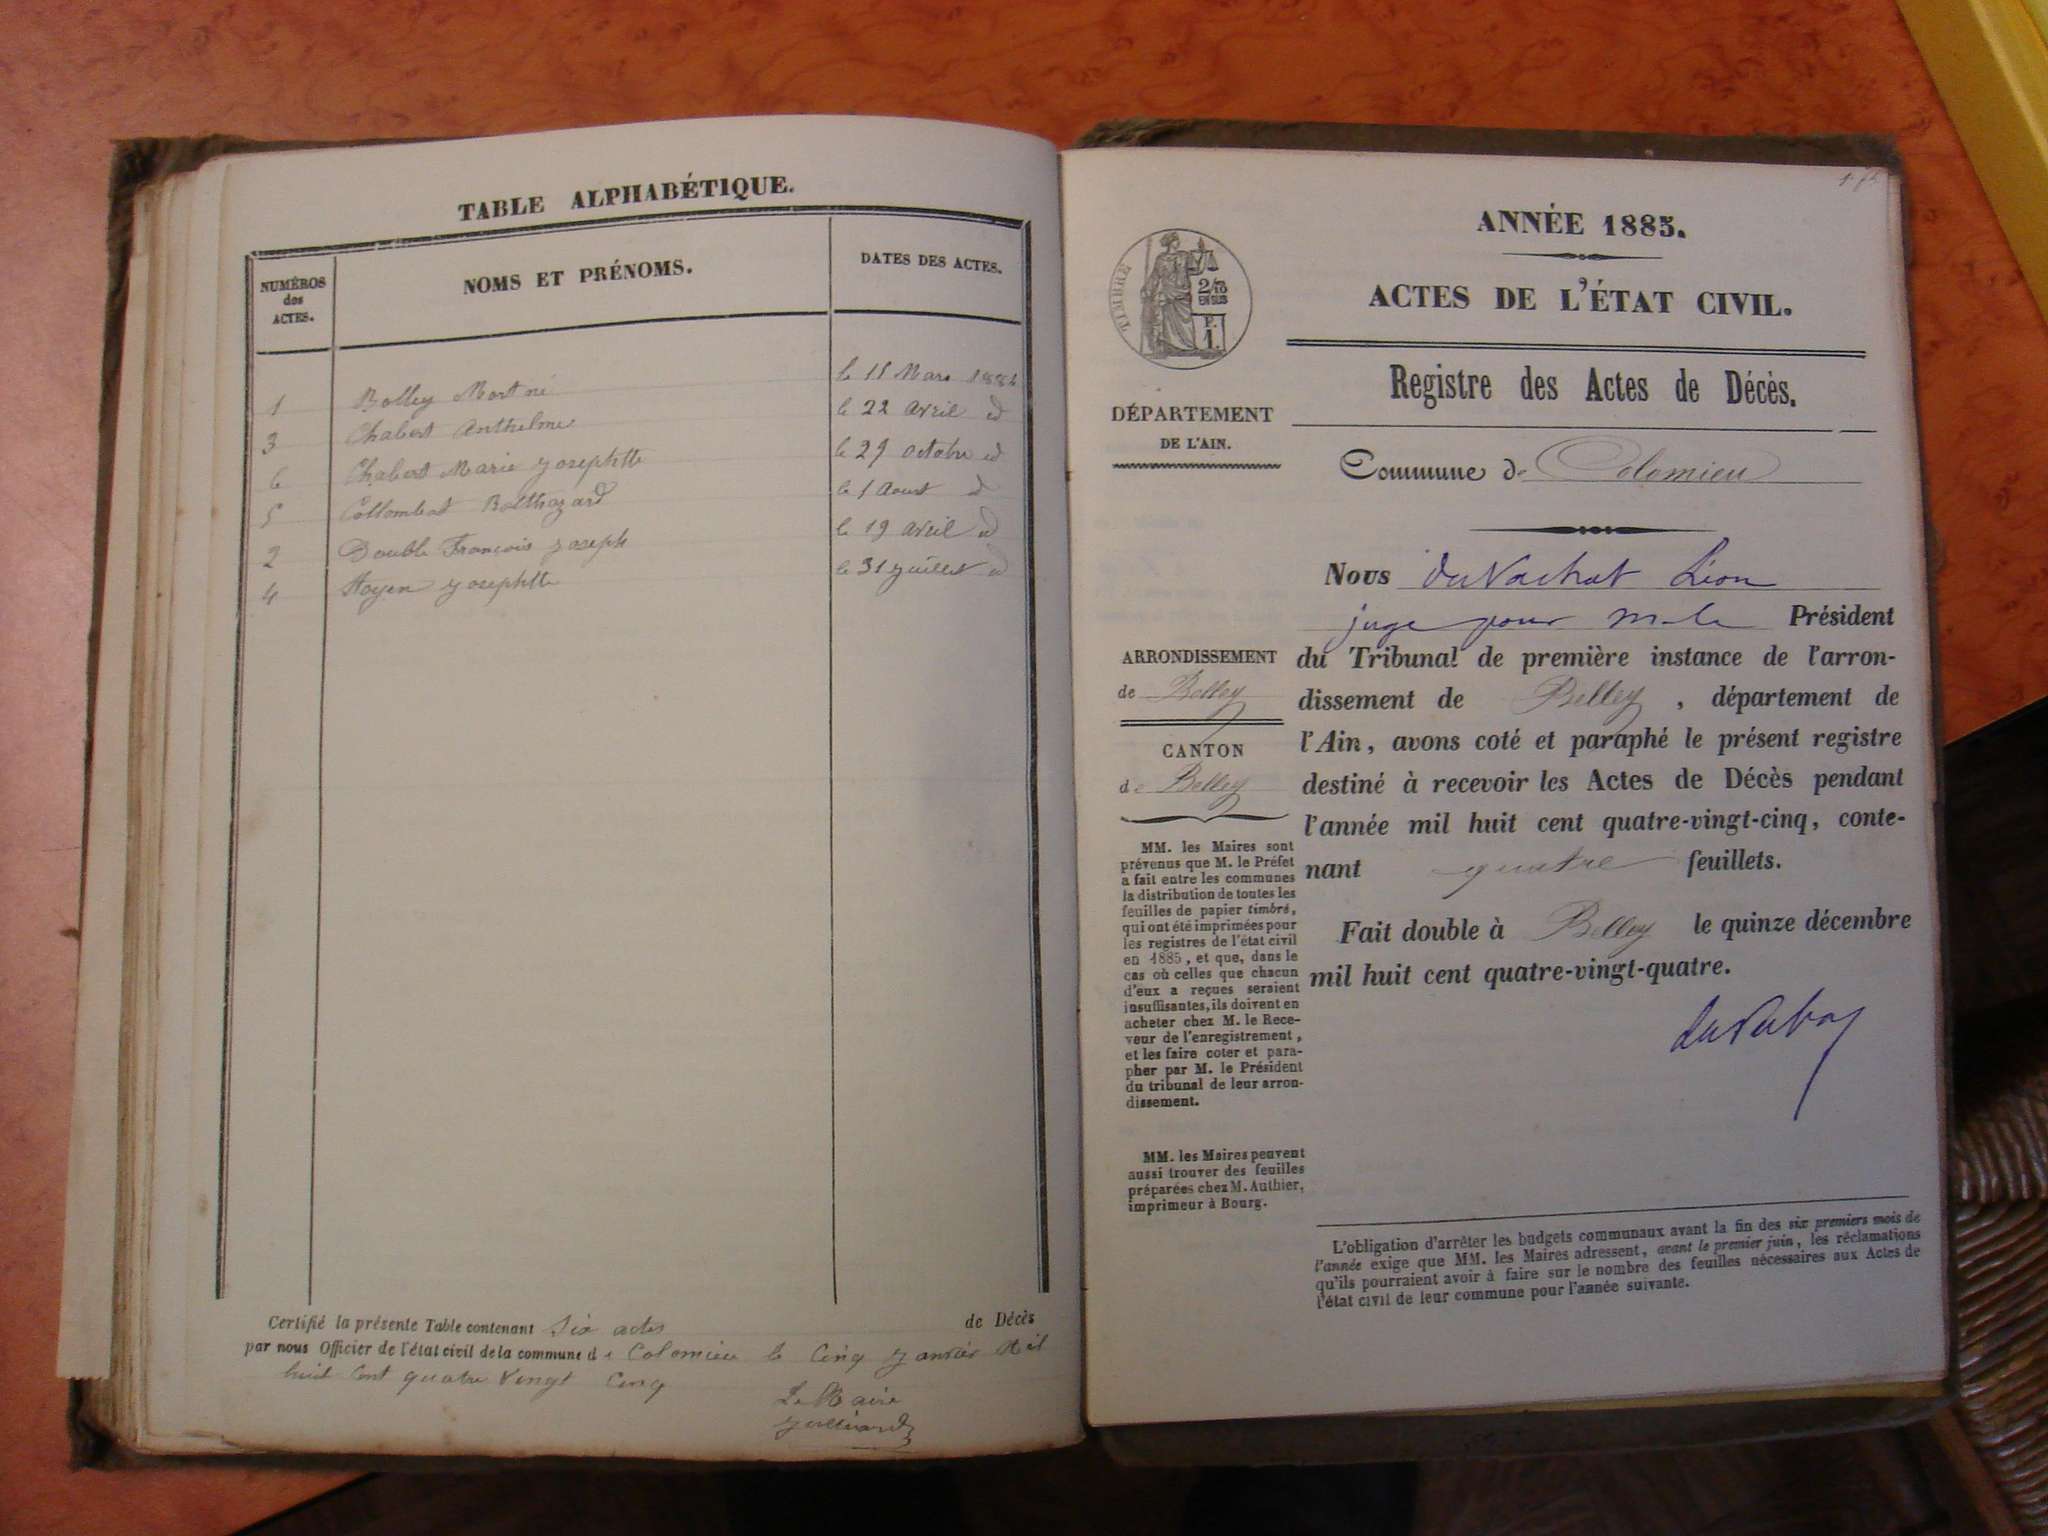 TABLE ALPHABÉTIQUE.
NUMÉROS
des
ACTES.
NOMS ET PRÉNOMS.
DATES DES ACTES.
1 Bolley Mort né le 15 Mars 1884
3 Chabert Anthelme le 22 avril id
6 Chabert Marie Josephtte le 29 octobre id
5 Collombat Balthazard le 1 Aout id
2 Double François Joseph le 19 avril id
4 Hoyen Josephtte le 31 Juillet id
Certifié la présente Table contenant Six actes de Décès
par nous Officier de l'état civil de la commune de Colomieu le Cinq Janvier Mil
huit Cent quatre Vingt Cinq
Le Maire
Julliard
ANNÉE 1885.
ACTES DE L'ÉTAT CIVIL.
Registre des Actes de Décès.
Commune de Colomieu
TIMBRE
2/10
EN SUS
P.
1.
DÉPARTEMENT
DE L'AIN.
ARRONDISSEMENT
de Belley
CANTON
de Belley
MM. les Maires sont
prévenus que M. le Préfet
a fait entre les communes
la distribution de toutes les
feuilles de papier timbré,
qui ont été imprimées pour
les registres de l'état civil
en 1885, et que, dans le
cas où celles que chacun
d'eux a reçues seraient
insuffisantes, ils doivent en
acheter chez M. le Rece-
veur de l'enregistrement,
et les faire coter et para-
pher par M. le Président
du tribunal de leur arron-
dissement.
MM. les Maires peuvent
aussi trouver des feuilles
préparées chez M. Authier,
imprimeur à Bourg.
Nous du Vachat Léon
juge pour M. le Président
du Tribunal de première instance de l'arron-
dissement de Belley, département de
l'Ain, avons coté et paraphé le présent registre
destiné à recevoir les Actes de Décès pendant
l'année mil huit cent quatre-vingt-cinq, conte-
nant quatre feuillets.
Fait double à Belley le quinze décembre
mil huit cent quatre-vingt-quatre.
L'obligation d'arrêter les budgets communaux avant la fin des six premiers mois de
l'année exige que MM. les Maires adressent, avant le premier juin, les réclamations
qu'ils pourraient avoir à faire sur le nombre des feuilles nécessaires aux Actes de
l'état civil de leur commune pour l'année suivante.